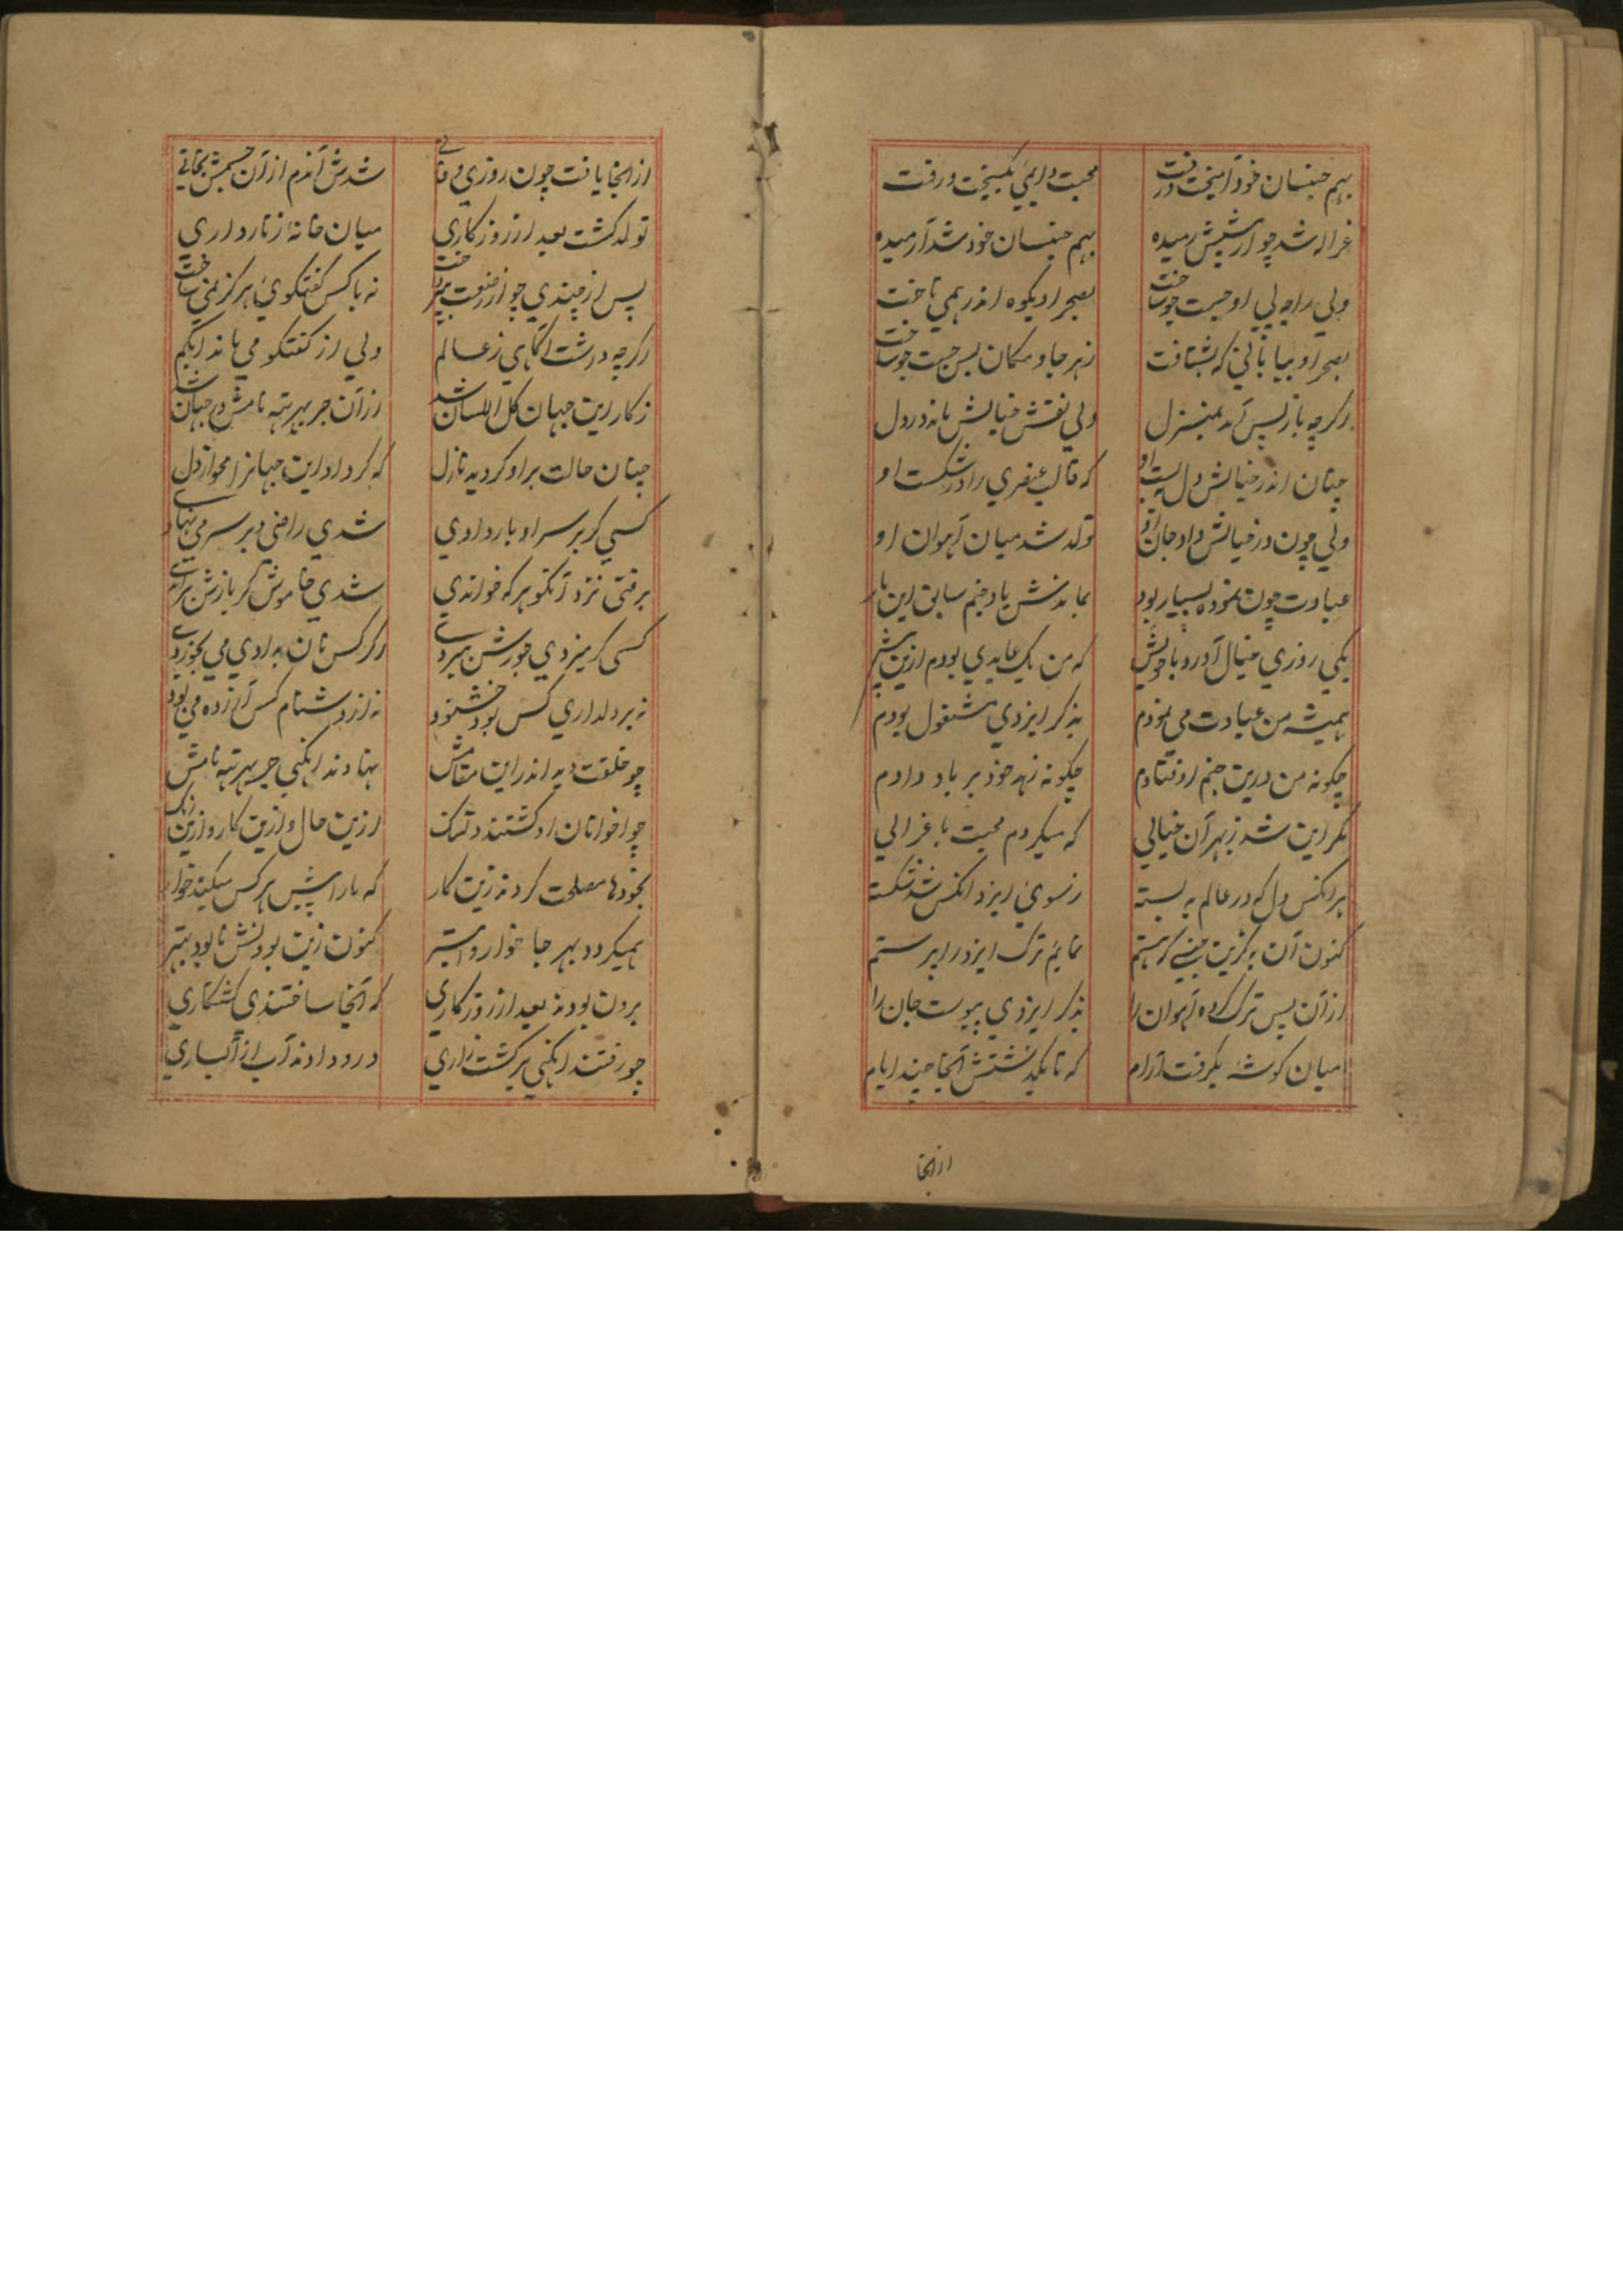 بهم جنسان خود آمیخت و رفت محبت دایمی بگسیخت و رفت
غزاله شد چو از پیشش رمیده بهم جنسان خود شد آرمیده
ولی راجه پی او جست جو ساخت بصحرا و بکوه اندر همی تاخت
بصحرا و بیابانی که بشتافت زهر جا و مکان بس جست جو ساخت
اگرچه باز پس آمد بمنزل ولی نقش خیالش ماند در دل
چنان اندر خیالش دل ببست او که قالب عنصری را در شکست او
ولی چون در خیالش داد جان او تولد شد میان آهوان او
عبادت چون نموده بسیار بود بماندش یاد جنم سابق این بار
یکی روزی خیال آورد با خویش که من یک عابدی بودم ازین پیش
همیشه من عبادت می نمودم بذکر ایزدی مشغول بودم
چگونه من درین جنم اوفتادم چگونه زهد خود بر باد دادم
مگر این شد زبهر آن خیالی که میکردم محبت با غزالی
هر انکس دل که در عالم به بسته زسوی ایزد انکس شد شکسته
کنون آن به کزین جنسی که هستم نمایم ترک ایزد را پرستم
از آن پس ترک کرده آهوان را بذکر ایزدی پیوست جان را
میان گوشهٔ بگرفت آرام که تا بگذشتش آنجا چند ایام
از انجا
از انجا یافت چون روزی وفاتی شدش آندم از آن جسمش نجاتی
تولد گشت بعد از روزگاری میان خانهٔ زنارداری
پس از چندی چو از نه با کس گفتگوی هرگز نمی ساخت
اگرچه داشت آگاهی زعالم ولی از گفتگو می ماند ابکم
زکار این جهان کل اللسان شد از آن جربهرته نامش در جهان شد
چنان حالت بر او گردیه نازل که کرد او این جهانرا محو از دل
کسی گر بر سر او بار دادی شدی راضی و بر سر می نهادی
برفتی نزد آنکو هر که خواندی شدی خاموش گر بازش براندی
کسی گر میزدی جورش ببردی اگر کس نان به او دی می بخوردی
نه بر دلداری کس بود خشنود نه از دشنام کس آزرده می بود
چو خلقت دیه اندر این مقامش نهادند انگهی جربهرته نامش
چو اخوانان او گشتند دلتنگ ازین حال و ازین کار و ازین رنگ
بخودها مصلحت کردند زین کار که ما را پیش هر کس میکند خوار
همیگردد بهر جا خوار و ابتر کنون زین بودنش نابود بهتر
برون بودند بعد از روزگاری که آنجا ساختندی کشتکاری
چو رفتند انگهی بر کشت زاری درو دادند آب از آبیاری